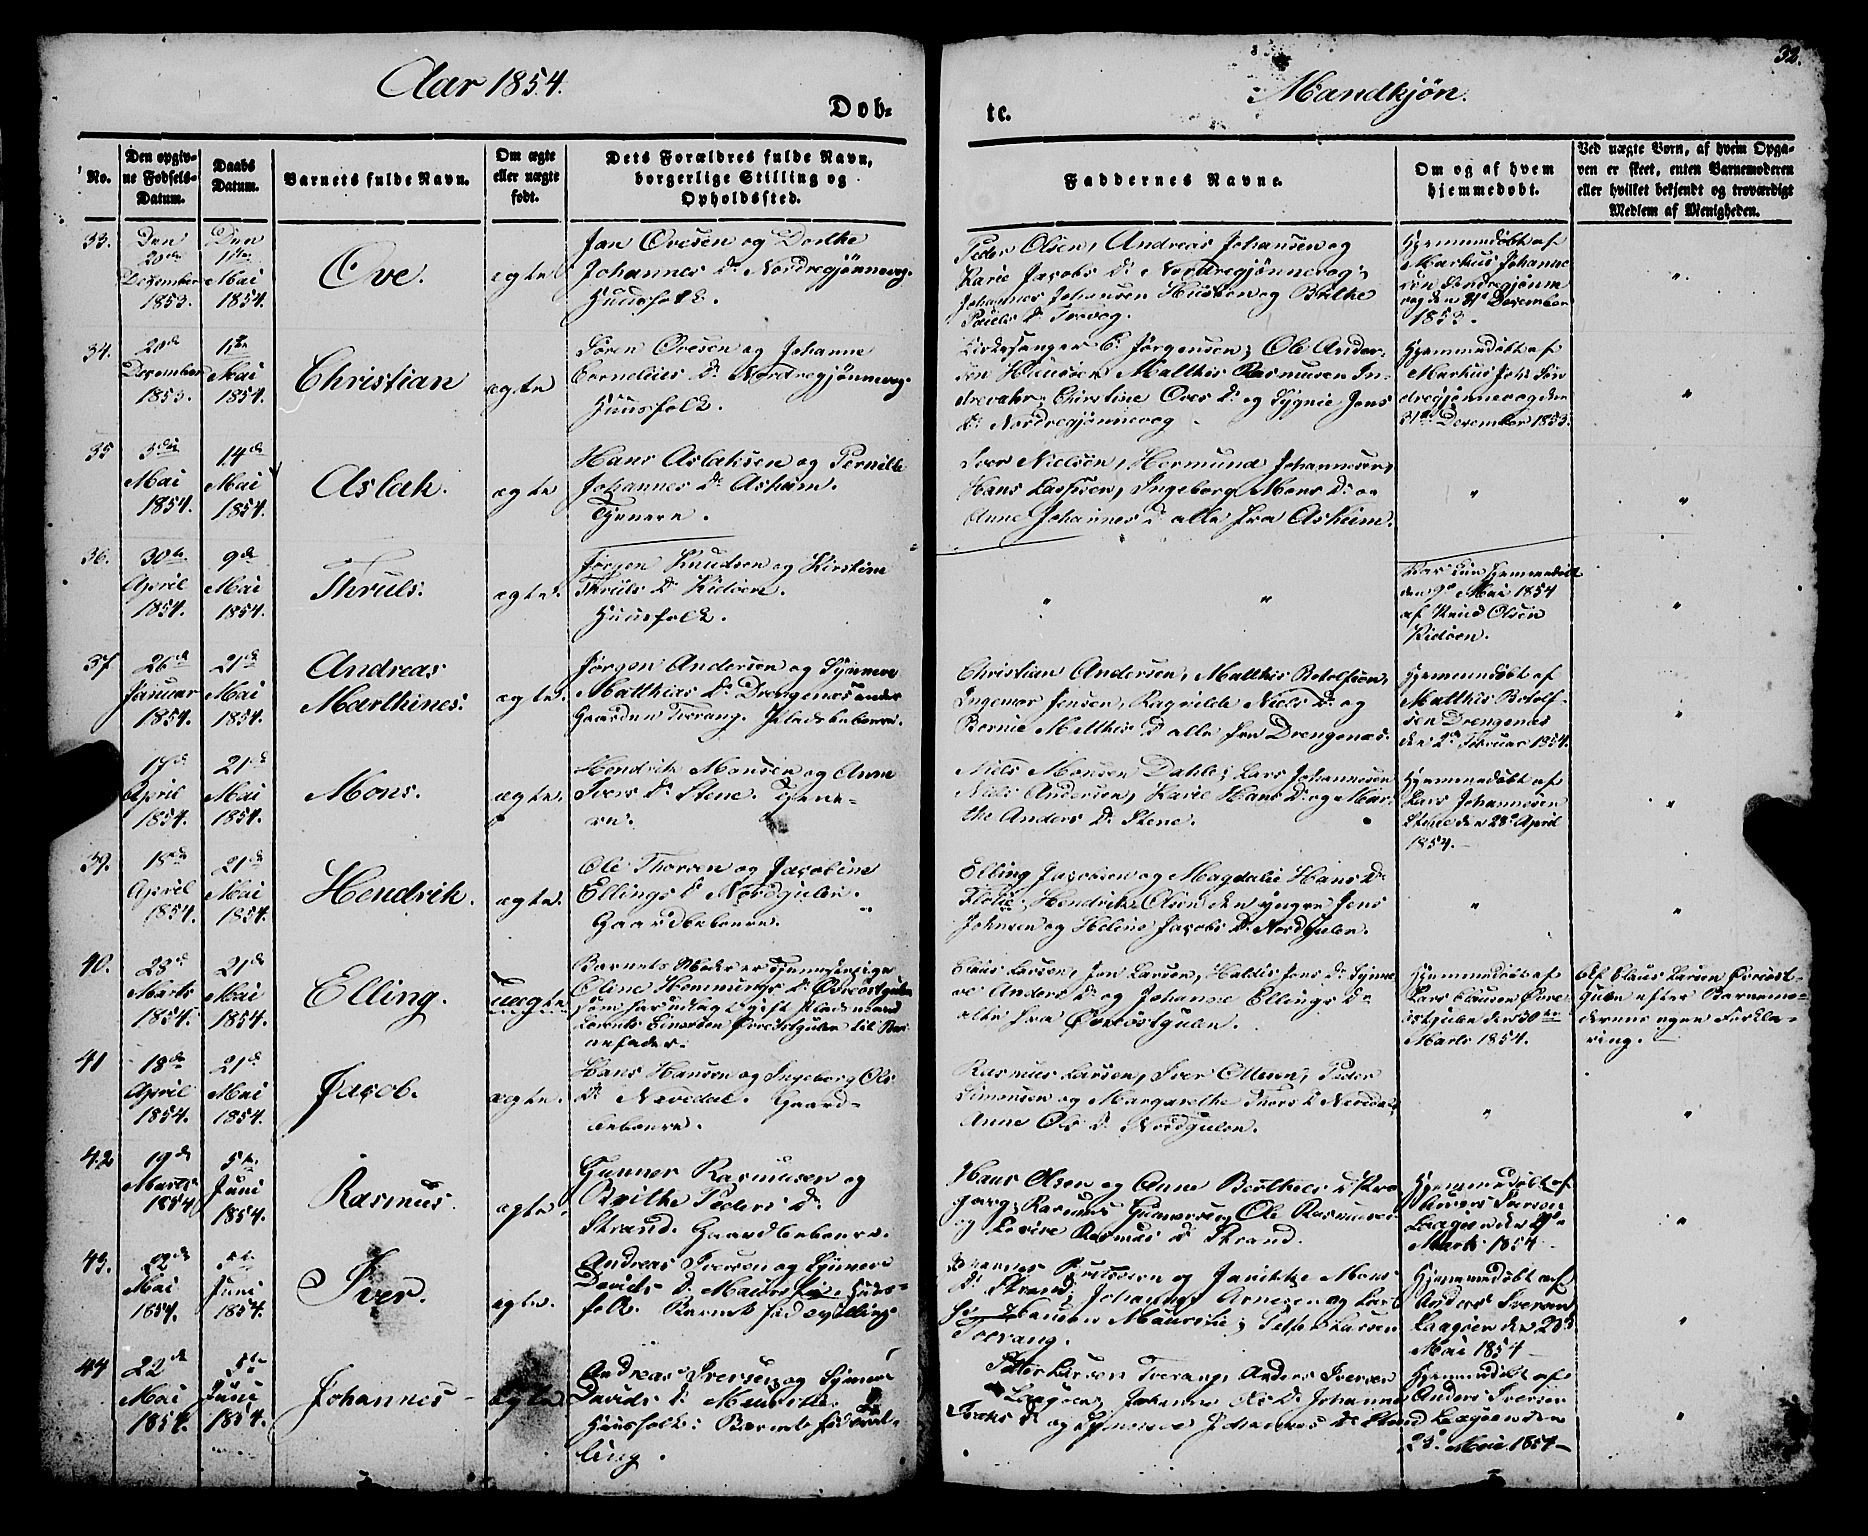 32.
Aar 1854.
Mandkjön.
Døb-
te.
No.
Den opgiv-
ne Fødsels-
Datum.
Daabs
Datum.
Barnets fulde Navn.
Om ægte
eller uægte
født.
Dets Forældres fulde Navn,
borgerlige Stilling og
Opholdssted.
Faddernes Navne.
Om og af hvem
hjemmedøbt.
Ved uægte Børn, af hvem Opga-
ven er skeet, enten Barnemoderen
eller hvilket bekjendt og troværdigt
Medlem af Menigheden.
33.
Den
20de
Dezember
1853.
Den
Mai
1854.
Ove.
ægte
Jan Ovesen og Dorthe
Johannes Dr Nordregjönnevog.
Huusfolk.
Peder Olsen, Andreas Johansen og
Karie Jacobs Dr Nordregjönnevog;
Johannes Johansen og Brithe
Dr
Hjemmedöbt af
Markus Johanne
sen Söndregjönne
vog den 31 Dezember
1853.
34.
20de
Dezember
1853.
Mai
1854.
Christian
ægte
Sören Ovesen og Johanne
Cornelius Dr Nordregjönnevog.
Huusfolk.
Kirkesanger C. Jörgensen; Ole Ander-
sen Matthis Rasmusen In-
Christine Oves Dr og Jens
Dr Nordregjönnevog
Hjemmedöbt af
Markus Joh. Sön
dregjönnevog den
31de Dezember 1853.
35
3die
Mai
1854.
14de
Mai
1854.
Aslak.
ægte
Hans Aslaksen og Pernille
Johannes Dr Asheim.
Tjenere.
Iver Nielsen, Hermund Johannesen,
Hans Lassesen, Ingeborg Mons Dr og
Anne Johannes Dr alle fra Asheim.
36.
30te
April
1854.
9de
Mai
1854.
Thruls.
ægte.
Jörgen Knudsen og Kirstine
Thruls Dr Kidöen.
Huusfolk.
Hjemmedöbt
den 9de Mai 1854
af Knud Olsen
Kidöen.
37
26de
Januar
1854.
21de
Mai
1854.
Andreas
Marthines.
ægte.
Jörgen Andersen og Synneve
Matthias Dr Drengenæs under
Gaarden Tverang. Pladsbeboere.
Christian Andersen, Matthis Botolfsen,
Ingemor Jensen, Ragnilde Niels Dr og
Bernie Matthis Dr alle fra Drengenæs.
Hjemmedöbt af
Matthis Botolf-
sen Drengenæs
den 2de Februar 1854.
17de
April
1854.
21de
Mai
1854.
Mons.
ægte.
Hendrik Monsen og Anne
Ivers Dr Stene. Tjene-
re.
Niels Monsen Dahle; Lars Johannesen
Niels Andersen, Karie Hans Dr og Mar-
the Anders Dr Stene.
Hjemmedöbt af
Lars Johannesen
Stene den 28de April
1854.
39.
18de
April
1854.
21de
Mai
1854.
Hendrik.
ægte.
Ole Thorsen og Jacobine
Ellings Dr Nordgulen.
Gaardbeboere.
Elling Jacobsen og Magdalie Hans Dr
Flolie; Hendrik Olsen den yngre Jens
Johnsen og Helene Jacobs Dr Nordgulen.
40.
28de
Marts
1854.
21de
Mai
1854.
Elling.
uægte
Barnets Moder er Tjenestepige
Oline Hemmings Dr Övreöstgulen
som har udlagt gift Pladsmand
Einersen Övreöstgulen til Bar-
nefader.
Claus Larsen, Jon Larsen, Haldis Jons Dr Synne
ve Anders Dr og Johanne Ellings Dr
alle fra Övreöstgulen.
Hjemmedöbt af
Lars Clausen Övre-
östgulen den 30te
Marts 1854.
Af Claus Larsen Övreöst-
gulen efter Barnemo-
derens egen Forkla-
ring.
41
18de
April
1854.
21de
Mai
1854.
Jacob.
ægte.
Hans Hansen og Ingeborg Ols
Dr Nevedal. Gaard-
beboere.
Rasmus Larsen, Iver Peder
Simonsen og Margarethe Thors Dr Nevedal,
Anne Ols Dr Nordgulen.
42
19de
Marts
1854
5te
Juni
1854.
Rasmus.
ægte.
Gunner Rasmusen og
Brithe Peders Dr
Strand. Gaardbeboere.
Hans Olsen og Anne Berthels Dr
Rasmus Gunnersen, Ole Rasmusen
og Rasmus Dr Strand.
Hjemmedöbt af
Anders Iversen
Laagöen den
Marts 1854
43.
22de
Mai
1854.
5te
Juni
1854.
Iver.
ægte.
Andreas Iversen og Synneve
Davids Dr Huus-
folk. Barnet född Tvilling.
og Jannikke Mons
Dr Strand; Johannes Arnesen og Lars
Tverang.
Hjemmedöbt af
Anders Iversen
Laagöen den 23de
Mai 1854
44
22de
Mai
1854.
5te
Juni
1854.
Johannes
ægte
Andreas Iversen og Synneve
Davids Dr
Huusfolk: Barnet född Tvil-
ling.
Peder Larsen Tverang, Anders Iversen
Laagöen, Johanne Ols Dr Johanne
Dr og Synneve Johannes Dr Strand
Hjemmedöbt af
Anders Iversen
Laagöen den
23de Mai 1854